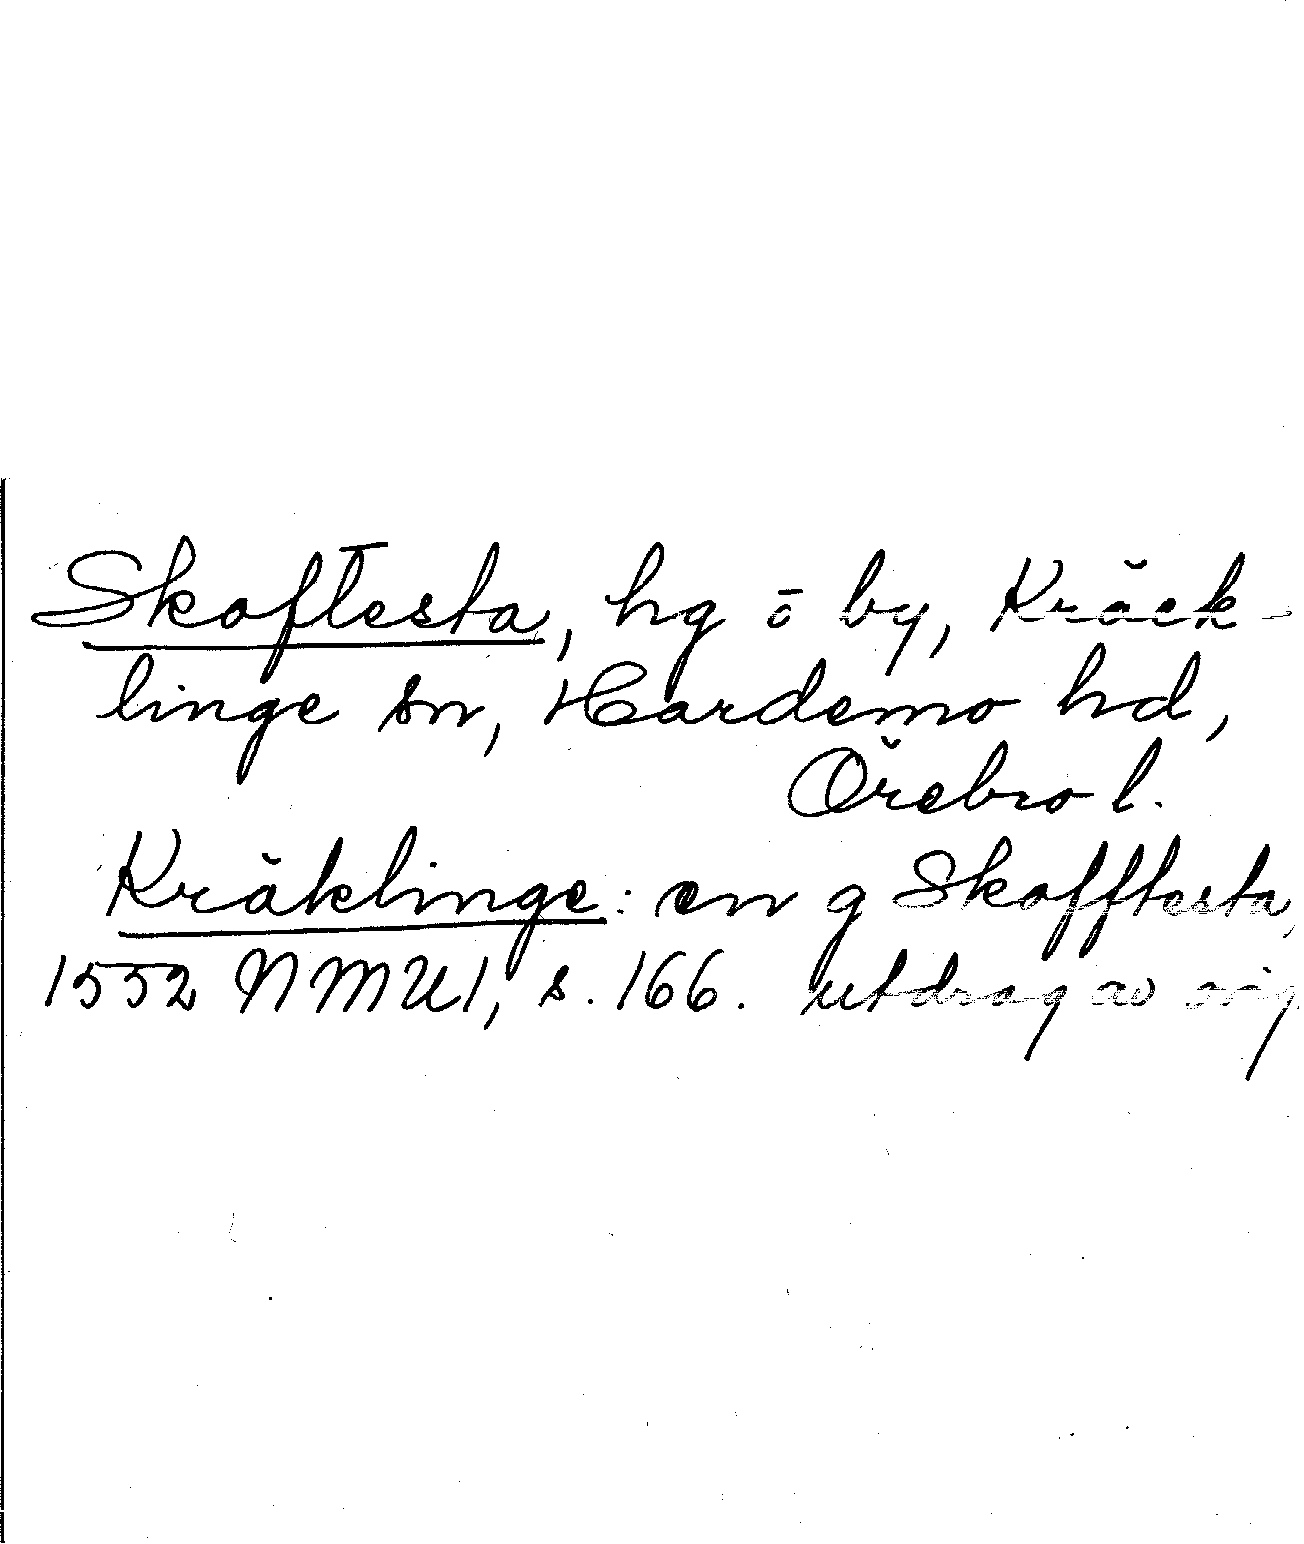 Skoftesta, hg ö by, Kräck-
linge sn, Hardemo hd,
Örebro l.
Kräklinge: en g Skofftesta,
1552 NMU1, s. 166. utdrag av orig